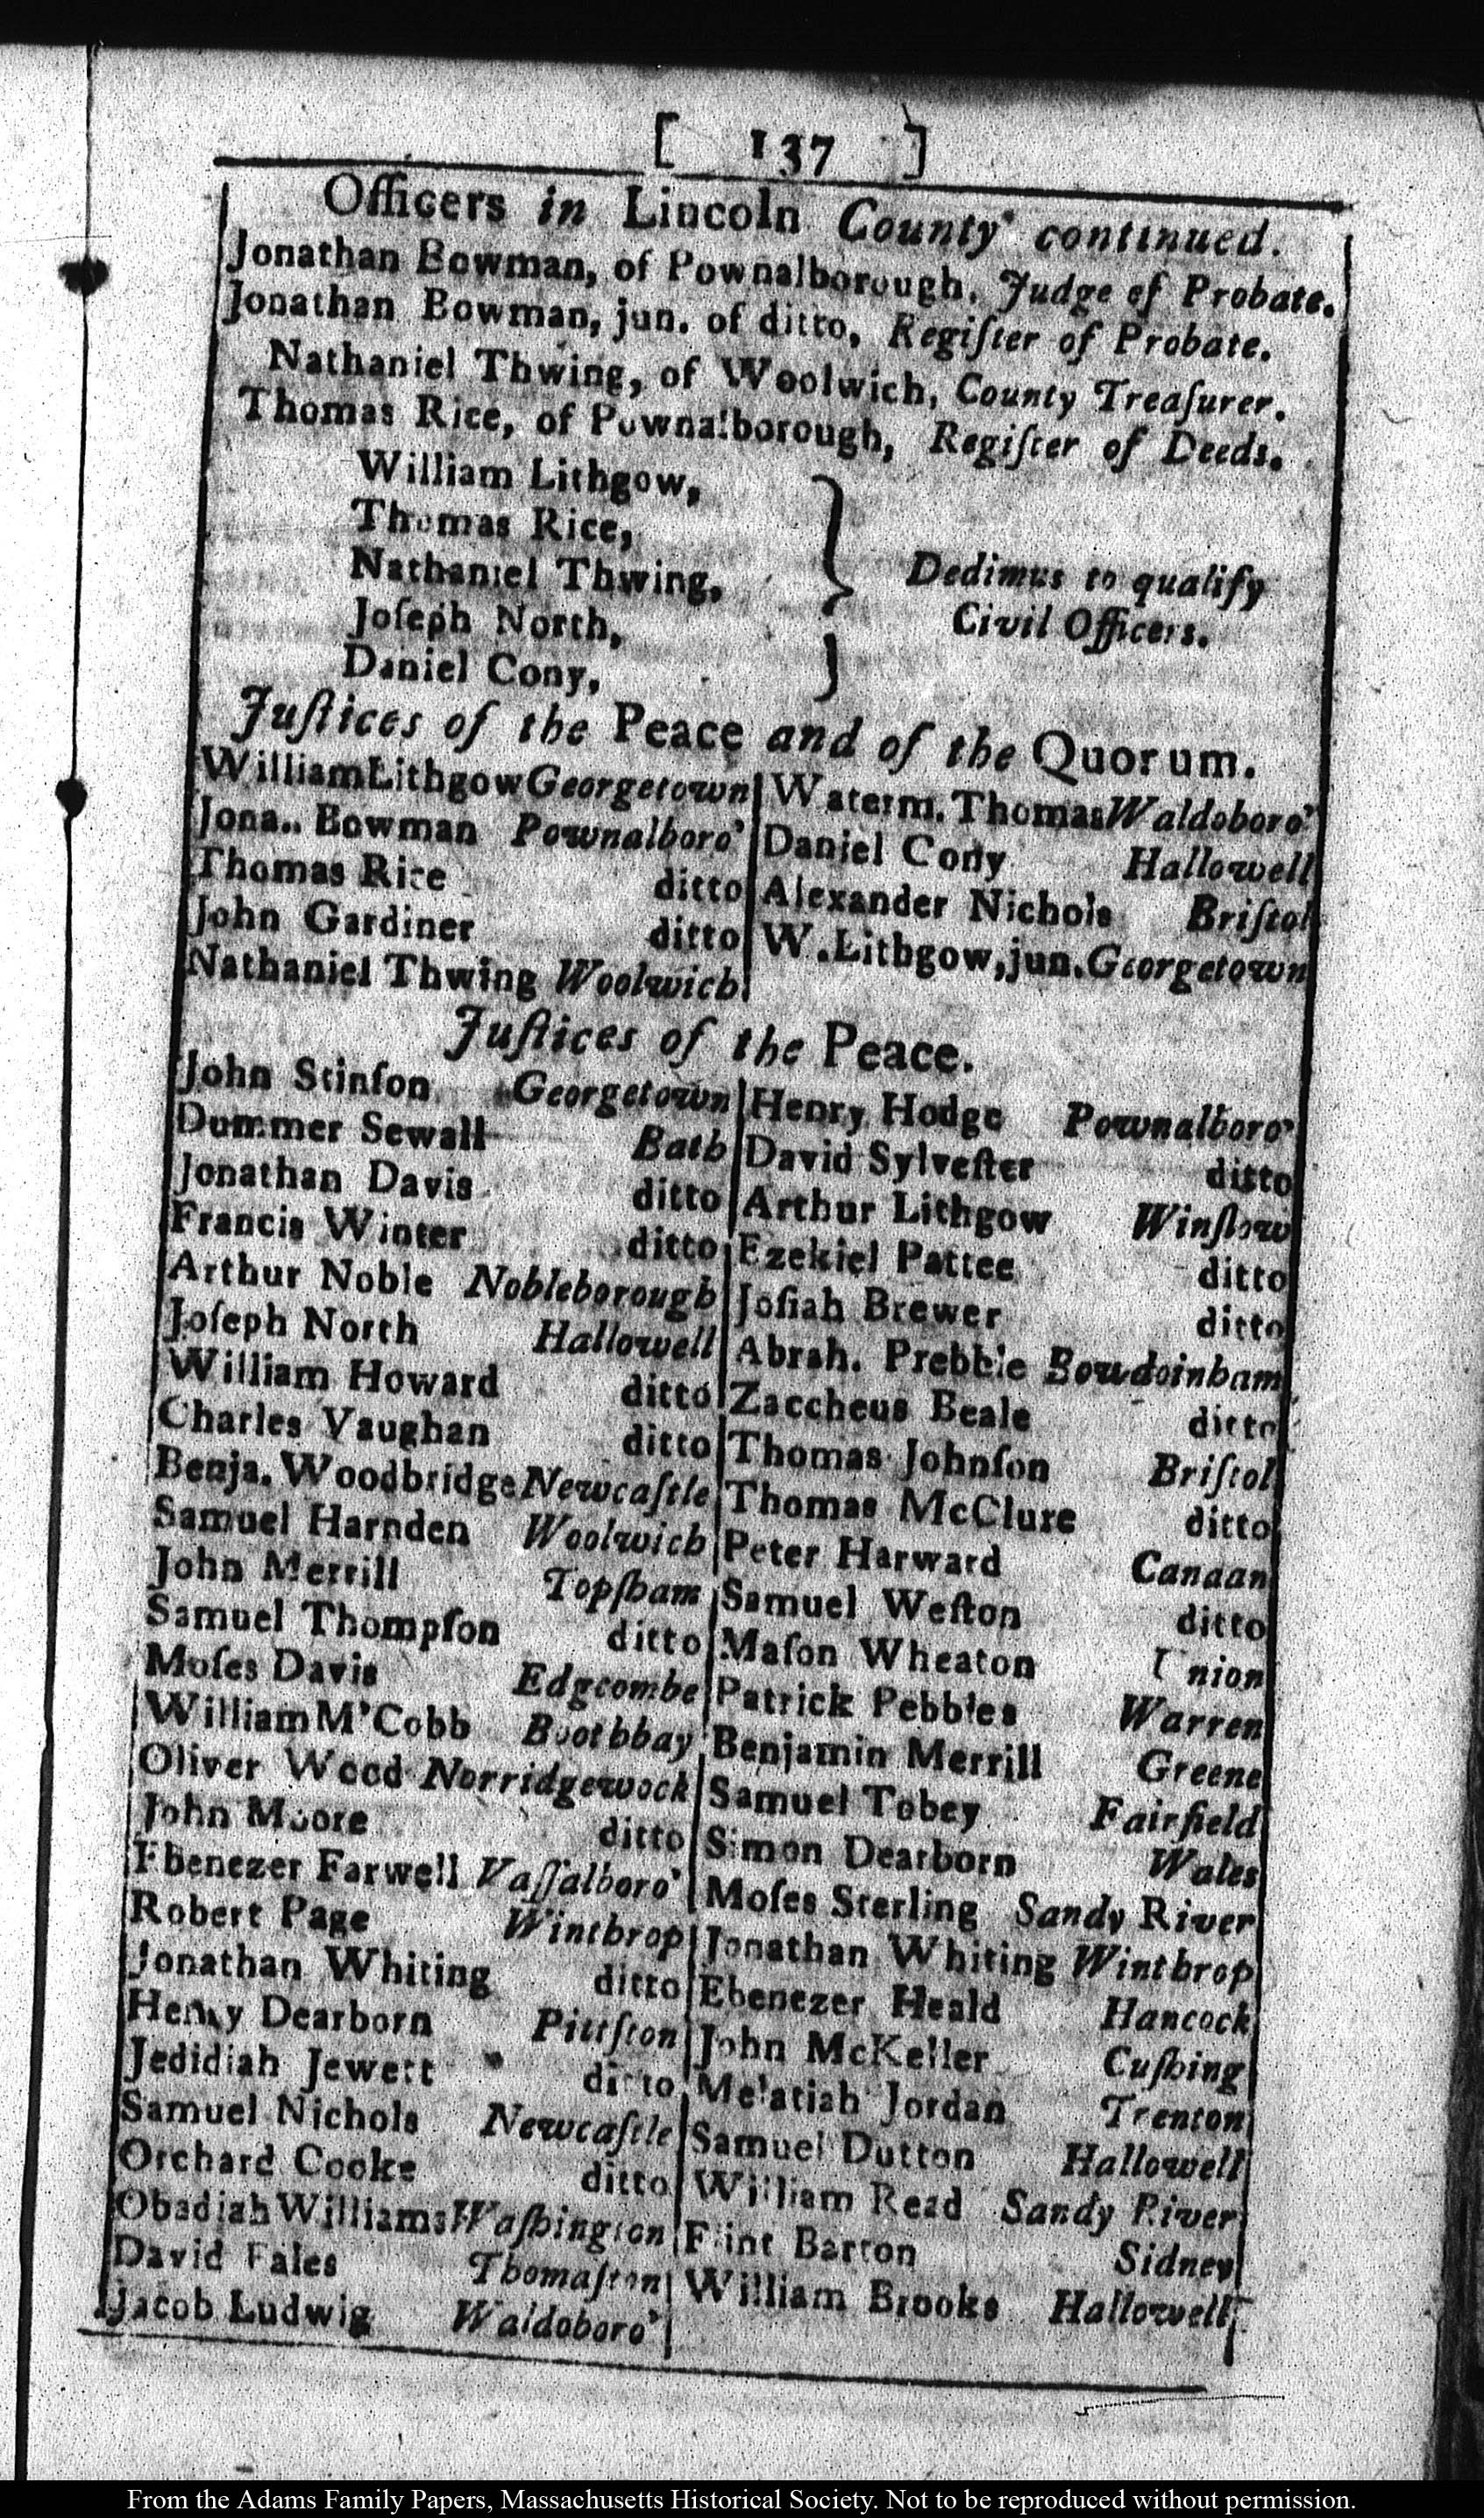 [ 137 ]
Officers in Lincoln County continued.
Jonathan Bowman, of Pownalborough, Judge of Probate.
Jonathan Bowman, jun. of ditto, Regiſter of Probate.
Nathaniel Thwing, of Woolwich, County Treaſurer.
Thomas Rice, of Pownalborough, Regiſter of Deeds.
William Lithgow,
Thomas Rice,
Nathaniel Thwing,
Joſeph North,
Daniel Cony,
Dedimus to qualify
Civil Officers.
Juſtices of the Peace and of the Quorum.
William Lithgow Georgetown
Jona.. Bowman Pownalboro'
Thomas Rice ditto
John Gardiner ditto
Nathaniel Thwing Woolwich
Waterm. Thomas Waldoboro'
Daniel Cony Hallowell
Alexander Nichols Briſtol
W. Lithgow, jun. Georgetown
Juſtices of the Peace.
John Stinſon Georgetown
Dummer Sewall Bath
Jonathan Davis ditto
Francis Winter ditto
Arthur Noble Nobleborough
Joſeph North Hallowell
William Howard ditto
Charles Vaughan ditto
Benja. Woodbridge Newcaſtle
Samuel Harnden Woolwich
John Merrill Topſham
Samuel Thompſon ditto
Moſes Davis Edgcombe
William M'Cobb Boothbay
Oliver Wood Norridgewock
John Moore ditto
Ebenezer Farwell Vaſſalboro'
Robert Page Winthrop
Jonathan Whiting ditto
Henry Dearborn Pittſton
Jedidiah Jewett ditto
Samuel Nichols Newcaſtle
Orchard Cooke ditto
Obadiah Williams Waſhington
David Fales Thomaſton
Jacob Ludwig Waldoboro'
Henry Hodge Pownalboro'
David Sylveſter ditto
Arthur Lithgow Winſlow
Ezekiel Pattee ditto
Joſiah Brewer ditto
Abrah. Prebble Bowdoinham
Zaccheus Beale ditto
Thomas Johnſon Briſtol
Thomas McClure ditto
Peter Harward Canaan
Samuel Weſton ditto
Maſon Wheaton Union
Patrick Pebbles Warren
Benjamin Merrill Greene
Samuel Tobey Fairfield
Simon Dearborn Wales
Moſes Sterling Sandy River
Jonathan Whiting Winthrop
Ebenezer Heald Hancock
John McKeller Cuſhing
Melatiah Jordan Trenton
Samuel Dutton Hallowell
William Read Sandy River
Flint Barton Sidney
William Brooks Hallowell
From the Adams Family Papers, Massachusetts Historical Society. Not to be reproduced without permission.